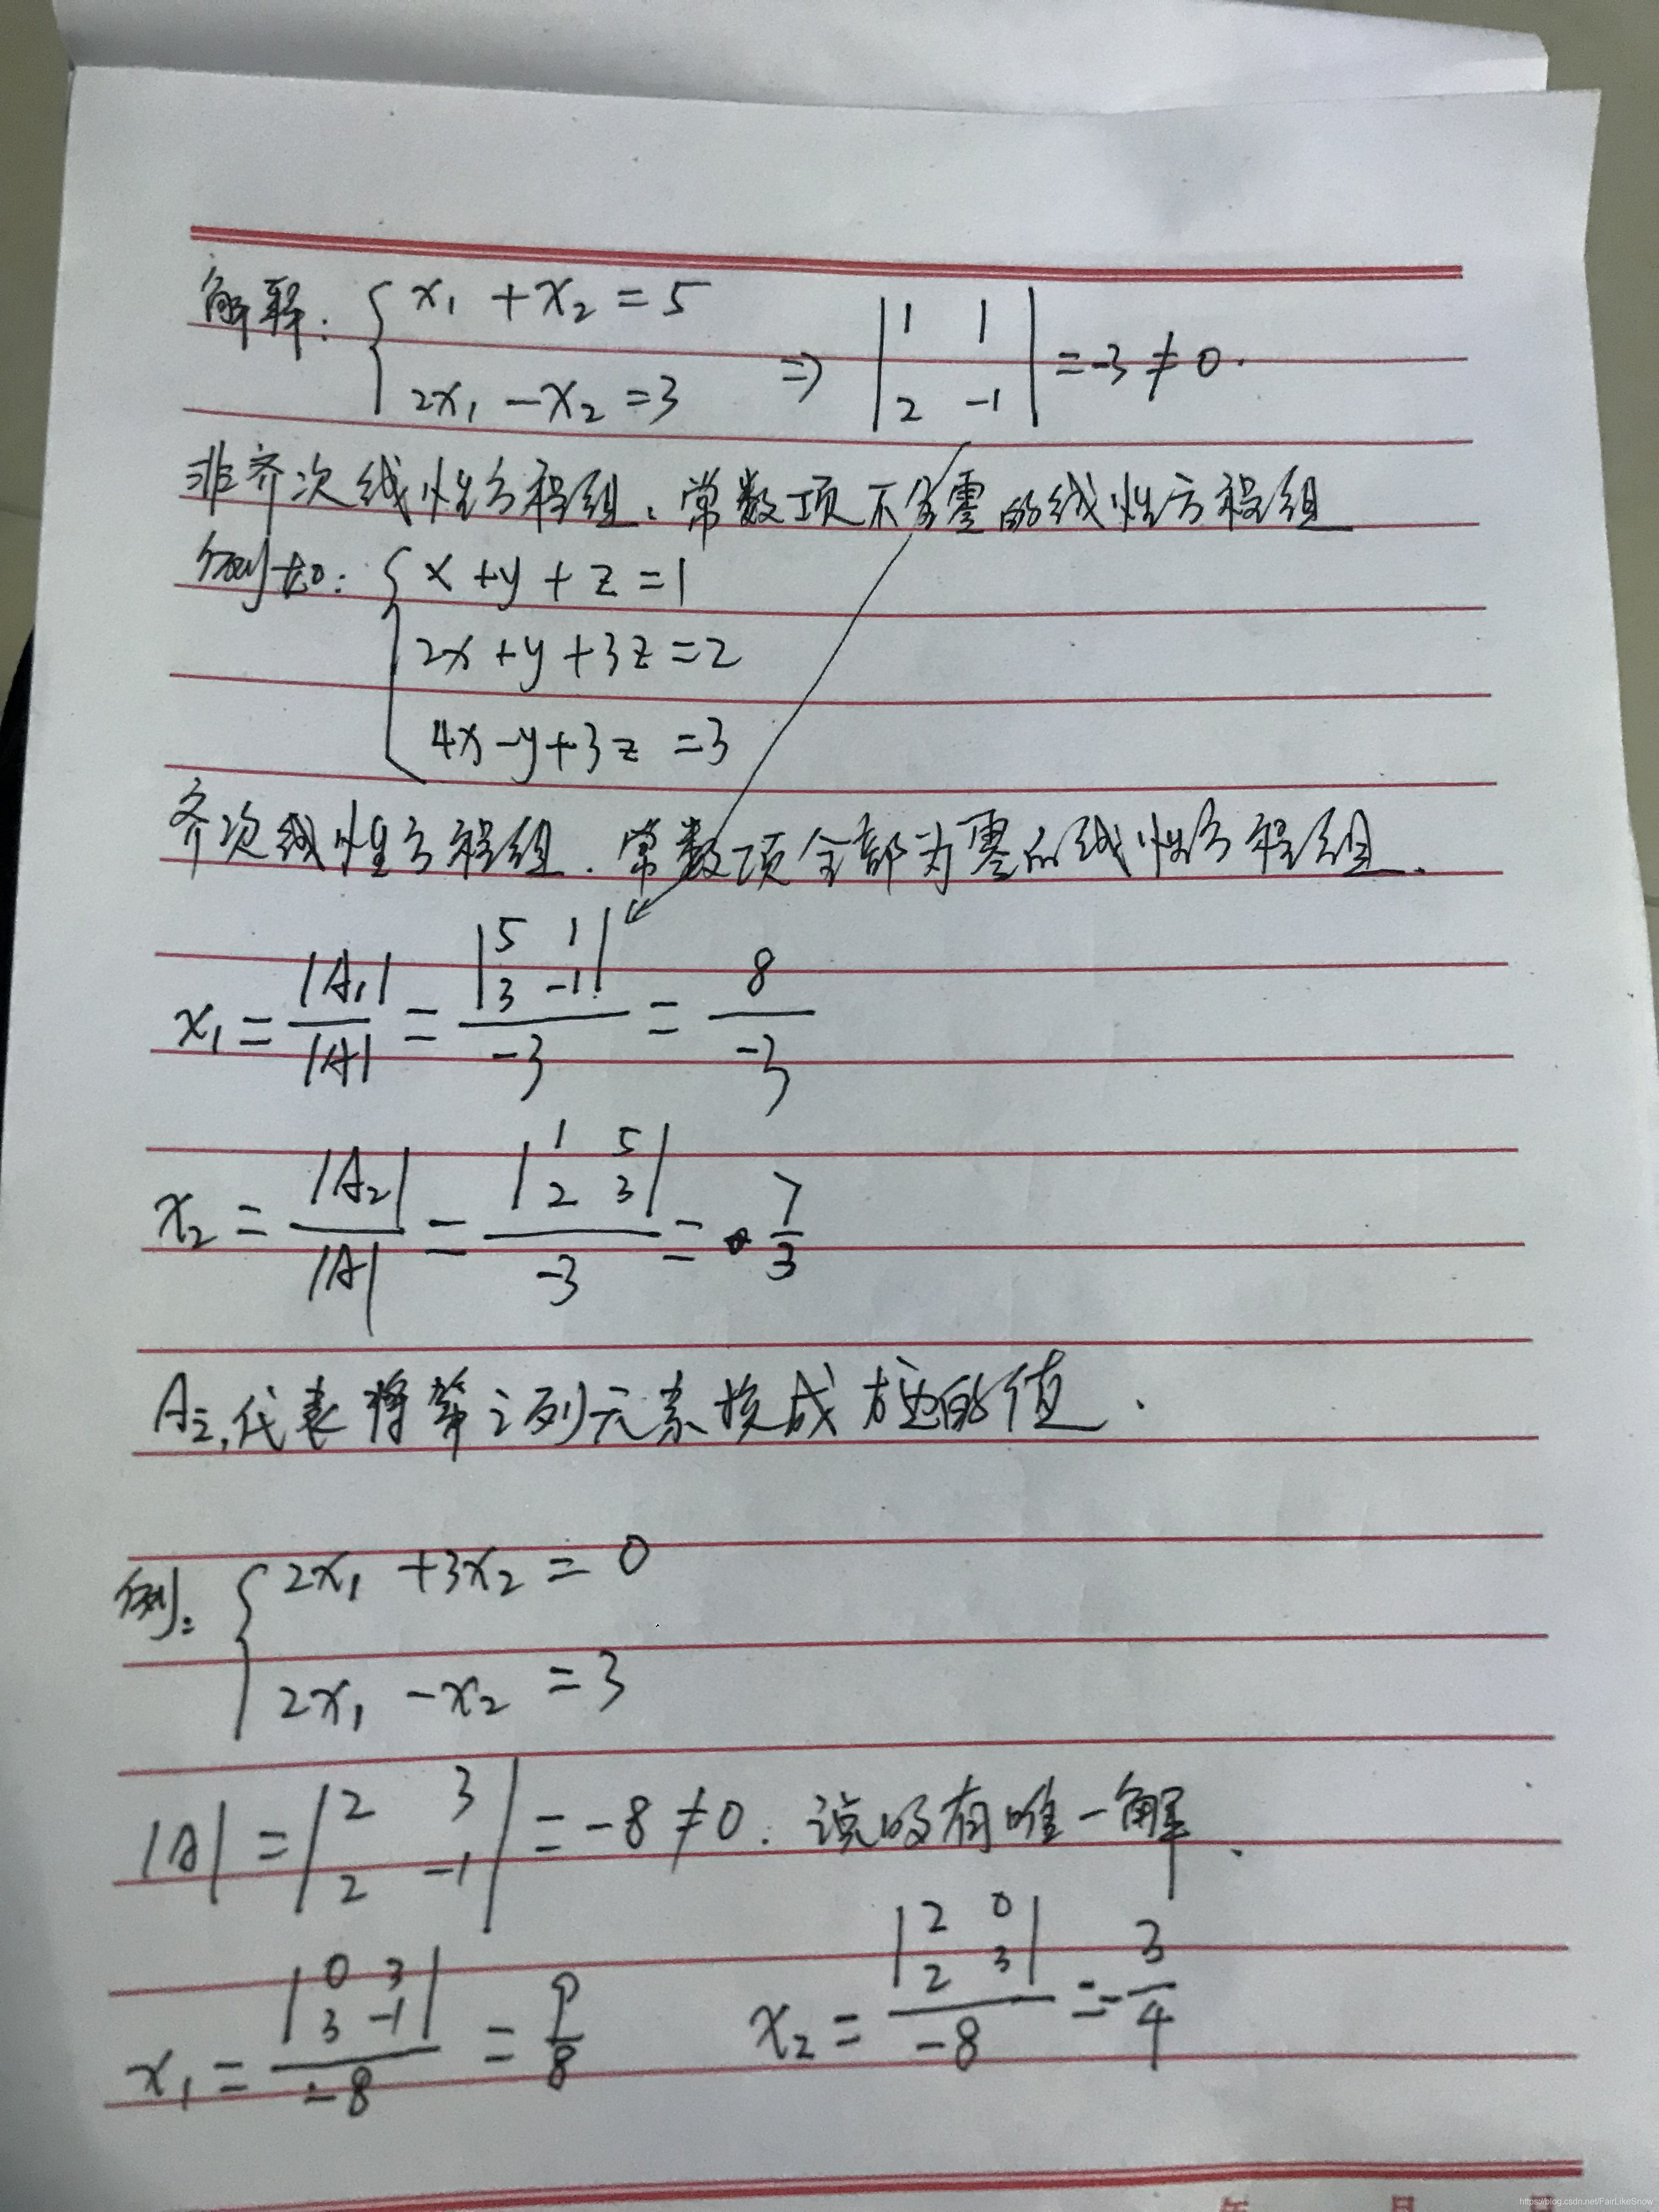 解释: { x₁ + x₂ = 5
2x₁ - x₂ = 3 ⇒ | 1 1 | = -3 ≠ 0.
| 2 -1 |
非齐次线性方程组: 常数项不全零的线性方程组
例如: { x + y + z = 1
2x + y + 3z = 2
4x - y + 3z = 3
齐次线性方程组. 常数项全部为零的线性方程组.
x₁ = |A₁| / |A| = | 5 1 | | 3 -1 | / -3 = 8 / -3
x₂ = |A₂| / |A| = | 1 5 | | 2 3 | / -3 = 7/3
A₂, 代表将第2列元素换成方程的值.
例: { 2x₁ + 3x₂ = 0
2x₁ - x₂ = 3
|A| = | 2 3 | | 2 -1 | = -8 ≠ 0. 说明有唯一解.
x₁ = | 0 3 | | 3 -1 | / -8 = 9/8 x₂ = | 2 0 | | 2 3 | / -8 = -3/4
年 月 日
https://blog.csdn.net/FairLikeSnow